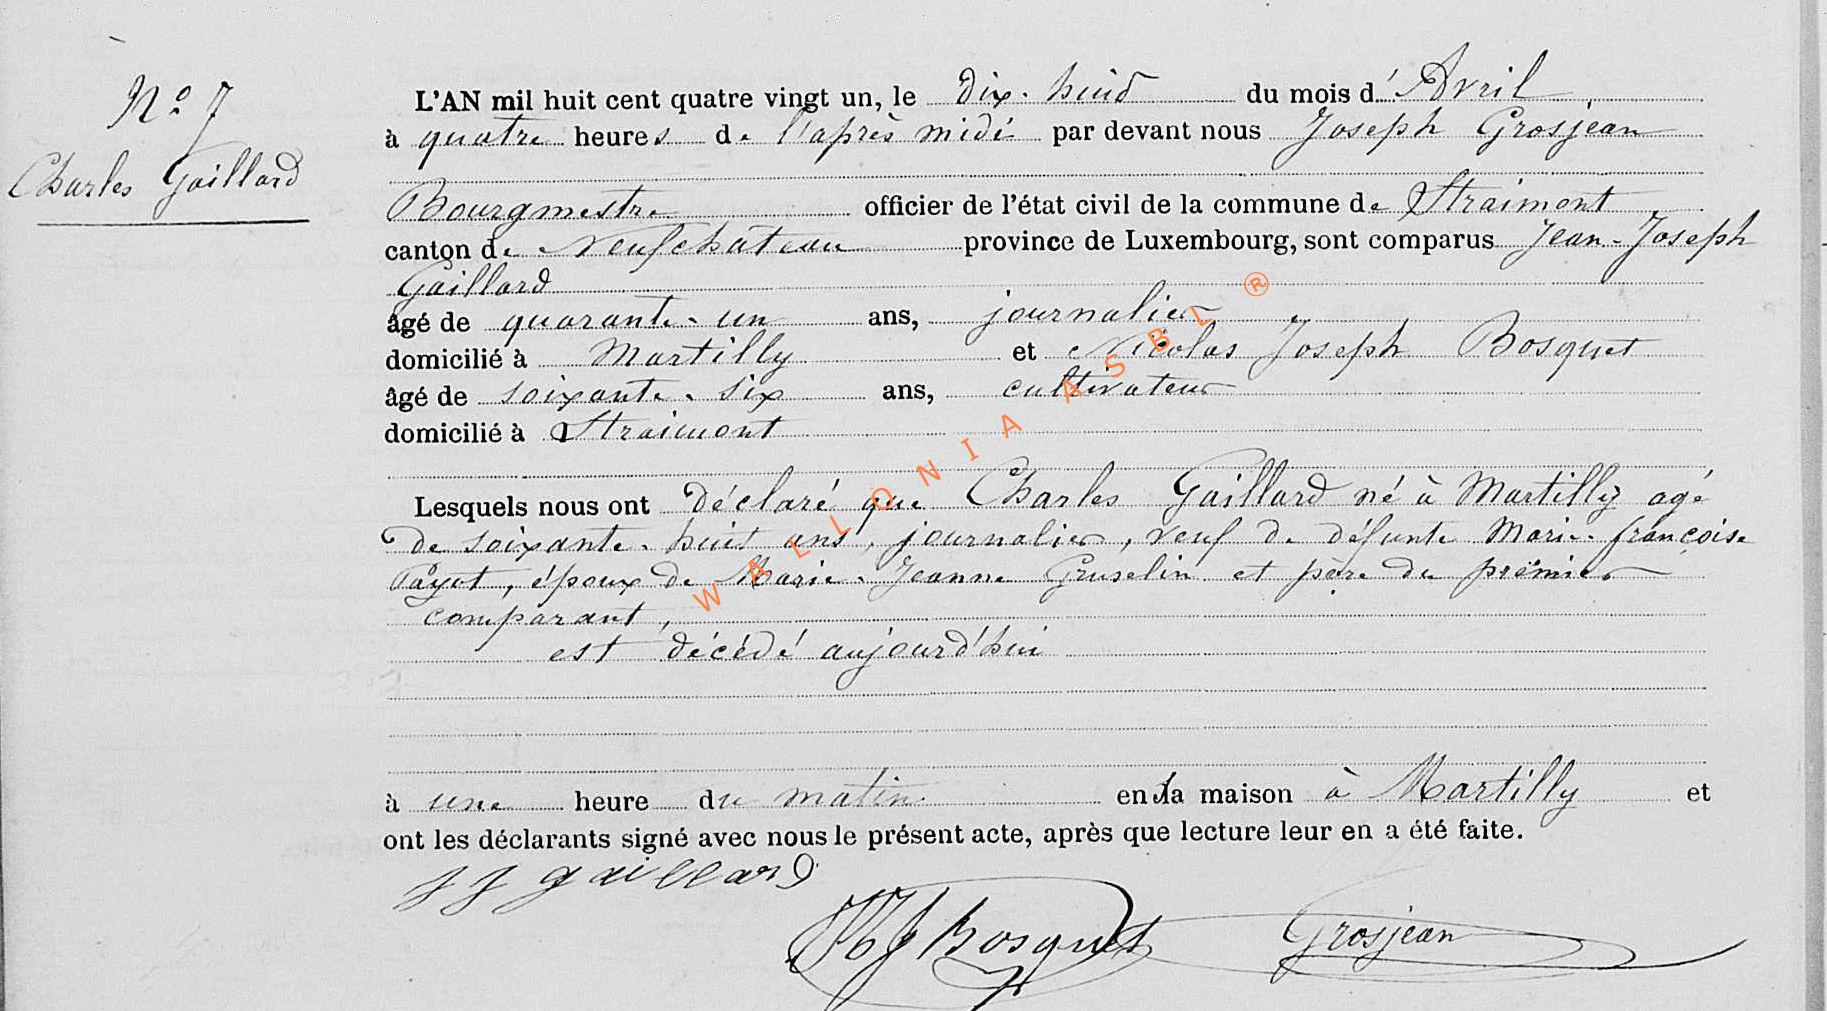 Nº 7
Charles Gaillard
L'AN mil huit cent quatre vingt un, le dix-huit du mois d'Avril
à quatre heures de l'après midi par devant nous Joseph Grosjean
Bourgmestre officier de l'état civil de la commune de Straimont
canton de Neufchâteau province de Luxembourg, sont comparus Jean-Joseph
Gaillard
âgé de quarante-un ans, journalier
domicilié à Martilly et Nicolas Joseph Bosquet
âgé de soixante-six ans, cultivateur
domicilié à Straimont
Lesquels nous ont déclaré que Charles Gaillard né à Martilly agé
de soixante-huit ans, journalier, veuf de défunte Marie-françoise
Payot, époux de Marie-Jeanne Gruselin et père du premier
comparant,
est décédé aujourd'hui
à une heure du matin en sa maison à Martilly et
ont les déclarants signé avec nous le présent acte, après que lecture leur en a été faite.
JJ gaillard
NJ Bosquet Grosjean
WALLONIA ASBL ®